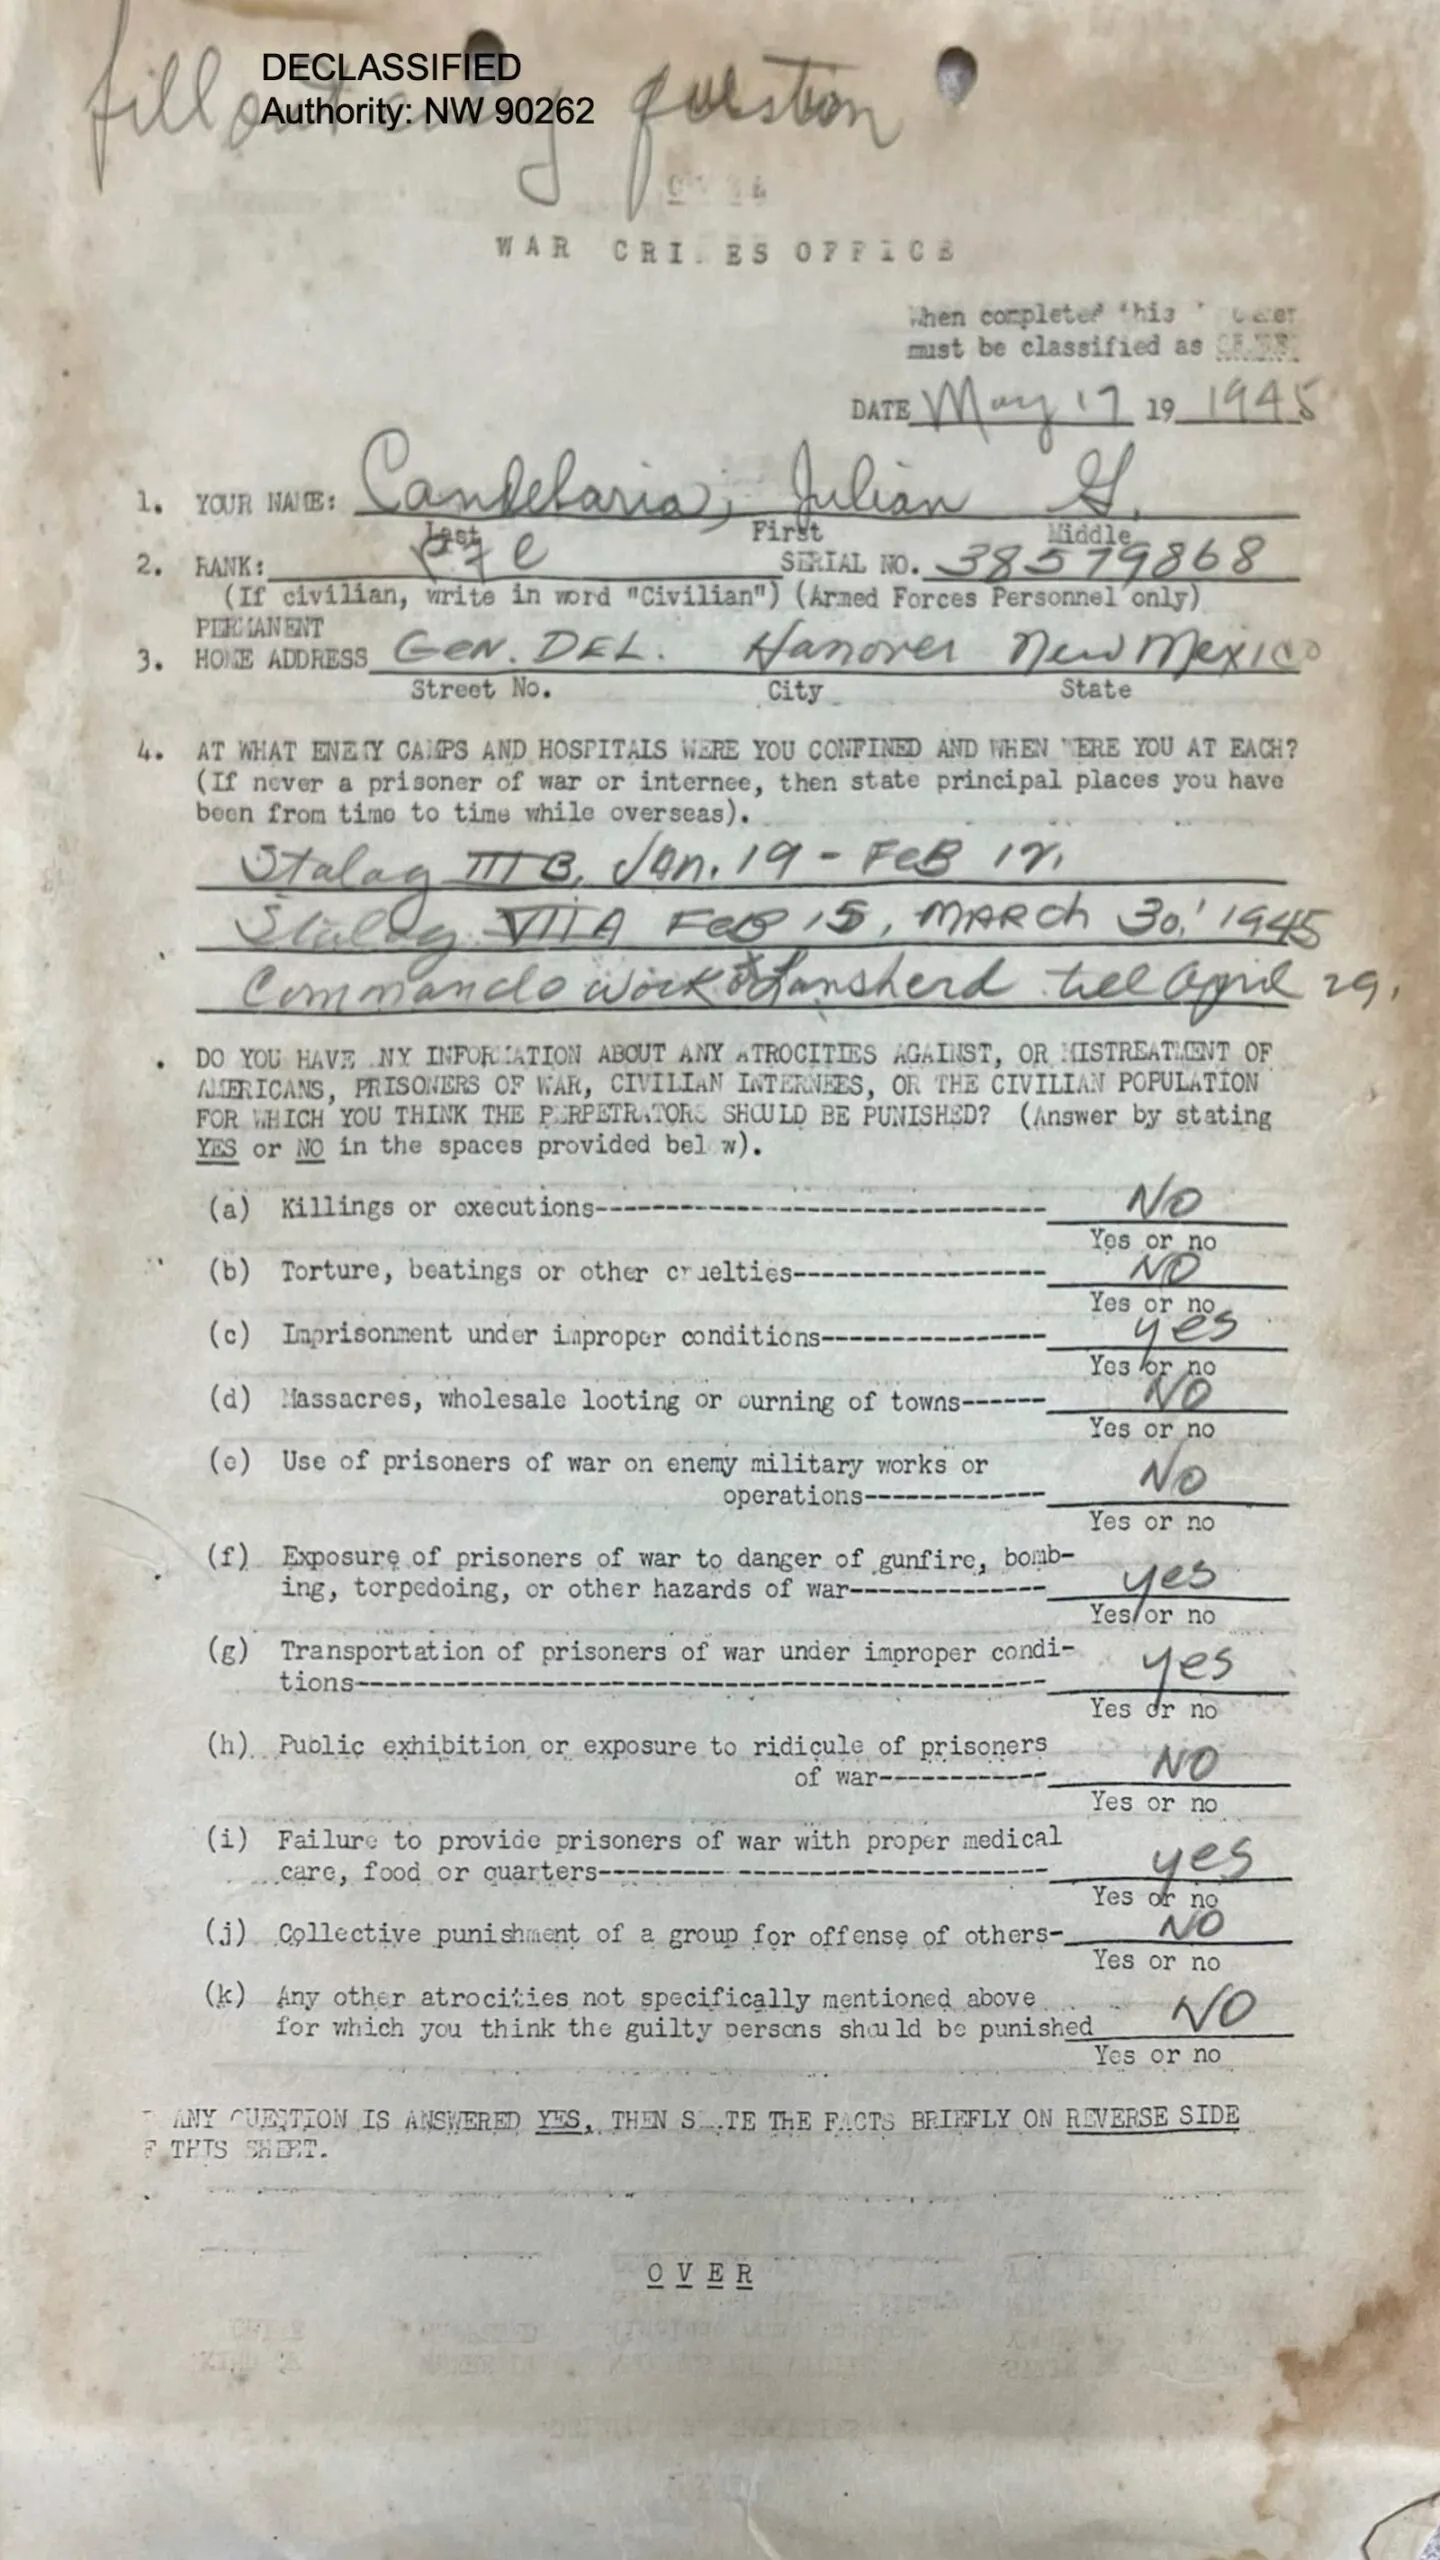 DECLASSIFIED
Authority: NW 90262
fill out every question
WAR CRI ES OFFICE
When completed this
must be classified as
DATE May 17 19 1945
1. YOUR NAME: Candelaria, Julian G.
Last First Middle
2. RANK: Pfc SERIAL NO. 38579868
(If civilian, write in word "Civilian") (Armed Forces Personnel only)
PERMANENT
3. HOME ADDRESS GEN. DEL. Hanover New Mexico
Street No. City State
4. AT WHAT ENEMY CAMPS AND HOSPITALS WERE YOU CONFINED AND WHEN WERE YOU AT EACH?
(If never a prisoner of war or internee, then state principal places you have
been from time to time while overseas).
Stalag III B, Jan. 19 - FEB 12,
Stalag VII A FEB 15, MARCH 30, 1945
Commando work Lansherd till April 29,
. DO YOU HAVE ANY INFORMATION ABOUT ANY ATROCITIES AGAINST, OR MISTREATMENT OF
AMERICANS, PRISONERS OF WAR, CIVILIAN INTERNEES, OR THE CIVILIAN POPULATION
FOR WHICH YOU THINK THE PERPETRATORS SHOULD BE PUNISHED? (Answer by stating
YES or NO in the spaces provided bel w).
(a) Killings or executions------------------------------- NO
Yes or no
(b) Torture, beatings or other cruelties----------------- NO
Yes or no
(c) Imprisonment under improper conditions--------------- yes
Yes or no
(d) Massacres, wholesale looting or burning of towns------ NO
Yes or no
(e) Use of prisoners of war on enemy military works or
operations------------- NO
Yes or no
(f) Exposure of prisoners of war to danger of gunfire, bomb-
ing, torpedoing, or other hazards of war-------------- yes
Yes or no
(g) Transportation of prisoners of war under improper condi-
tions------------------------------------------------ yes
Yes or no
(h) Public exhibition or exposure to ridicule of prisoners
of war------------ NO
Yes or no
(i) Failure to provide prisoners of war with proper medical
care, food or quarters------------------------------- yes
Yes or no
(j) Collective punishment of a group for offense of others- NO
Yes or no
(k) Any other atrocities not specifically mentioned above
for which you think the guilty persons should be punished NO
Yes or no
ANY QUESTION IS ANSWERED YES, THEN STATE THE FACTS BRIEFLY ON REVERSE SIDE
F THIS SHEET.
OVER